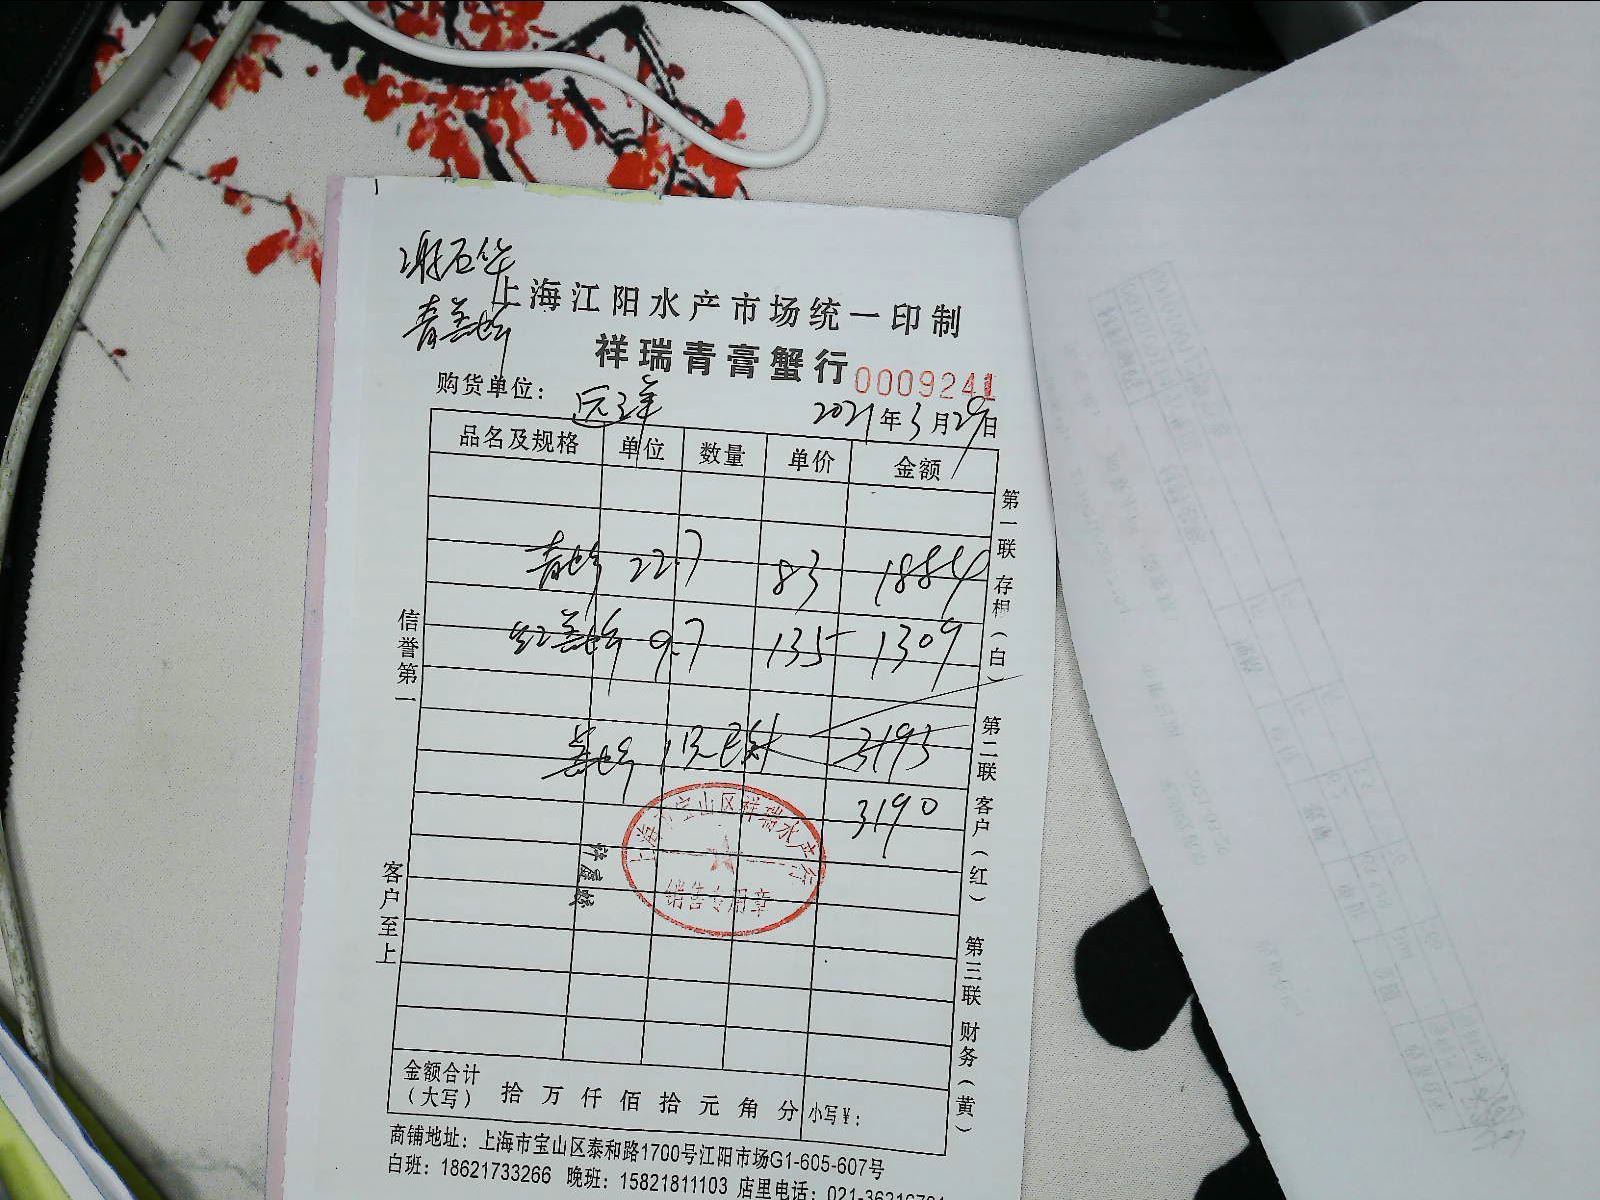 青盖蛤
上海江阳水产市场统一印制
祥瑞青膏蟹行 0009241
购货单位： 远洋
2021年3月29日
品名及规格 单位 数量 单价 金额
青蛤 22.7 83 1884
红盖蛤 9.7 135 1309
盖蛤 3193
3190
上海市宝山区祥瑞水产行
销售专用章
信誉第一
客户至上
第一联 存根（白）
第二联 客户（红）
第三联 财务（黄）
金额合计
（大写） 拾 万 仟 佰 拾 元 角 分 小写￥：
商铺地址：上海市宝山区泰和路1700号江阳市场G1-605-607号
白班：18621733266 晚班：15821811103 店里电话：021-